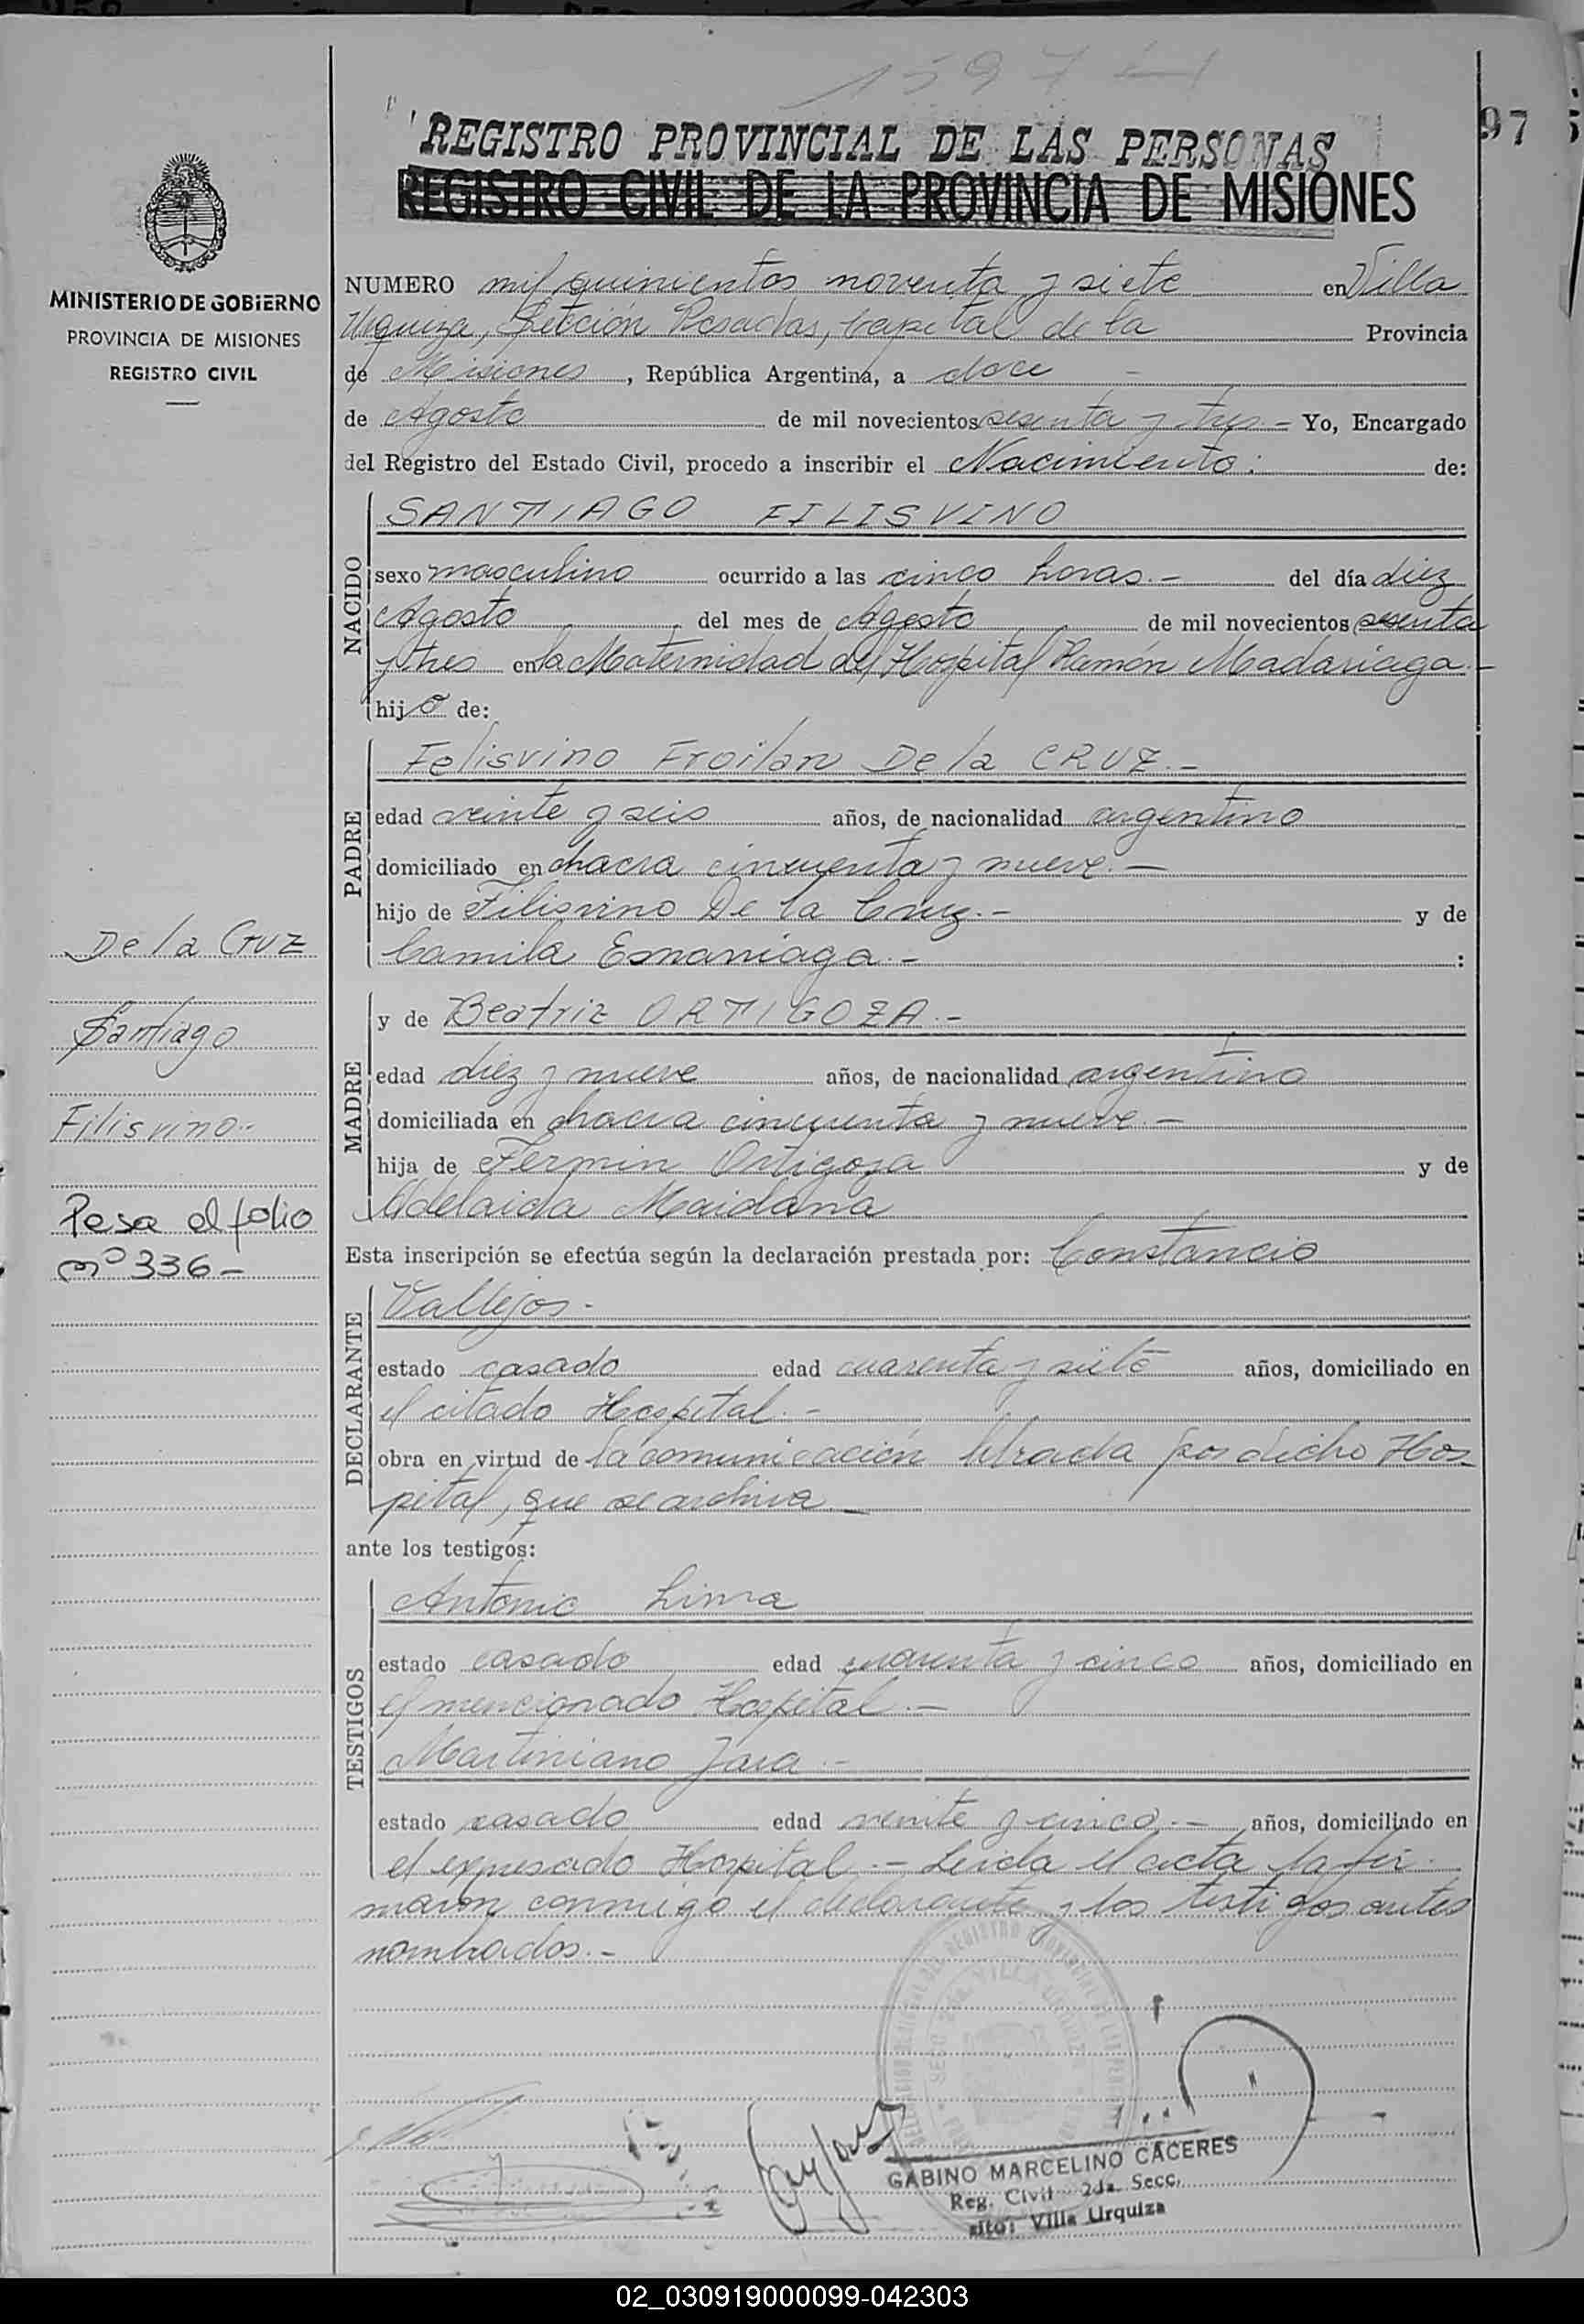 1597
97
REGISTRO PROVINCIAL DE LAS PERSONAS
REGISTRO CIVIL DE LA PROVINCIA DE MISIONES
MINISTERIO DE GOBIERNO
PROVINCIA DE MISIONES
REGISTRO CIVIL
NUMERO mil quinientos noventa y siete en Villa
Urquiza, Sección Posadas, Capital de la Provincia
de Misiones, República Argentina, a doce
de Agosto de mil novecientos sesenta y tres.- Yo, Encargado
del Registro del Estado Civil, procedo a inscribir el Nacimiento: de:
NACIDO
SANTIAGO FILISVINO
sexo masculino ocurrido a las cinco horas.- del día diez
Agosto del mes de Agosto de mil novecientos sesenta
y tres en la Maternidad del Hospital Ramón Madariaga.-
hijo de:
PADRE
Felisvino Froilan De la CRUZ.-
edad veinte y seis años, de nacionalidad argentino
domiciliado en chacra cincuenta y nueve.-
hijo de Filisvino De la Cruz.- y de
Camila Esmaniaga.- :
MADRE
y de Beatriz ORTIGOZA.-
edad diez y nueve años, de nacionalidad argentina
domiciliada en chacra cincuenta y nueve.-
hija de Fermin Ortigoza y de
Adelaida Maidana
De la Cruz
Santiago
Filisvino.-
Pasa al folio
nº 336-
Esta inscripción se efectúa según la declaración prestada por: Constancio
DECLARANTE
Vallejos.-
estado casado edad cuarenta y siete años, domiciliado en
el citado Hospital.-
obra en virtud de la comunicación librada por dicho Hos-
pital, que se archiva
ante los testigos:
TESTIGOS
Antonio Lima
estado casado edad cuarenta y cinco años, domiciliado en
el mencionado Hospital.-
Martiniano Jara.-
estado casado edad veinte y cinco.- años, domiciliado en
el expresado Hospital.- Leida el acta la fir-
maron conmigo el declarante y los testigos antes
nombrados.-
GABINO MARCELINO CACERES
Reg. Civil 2da. Secc.
sito: Villa Urquiza
02_030919000099-042303